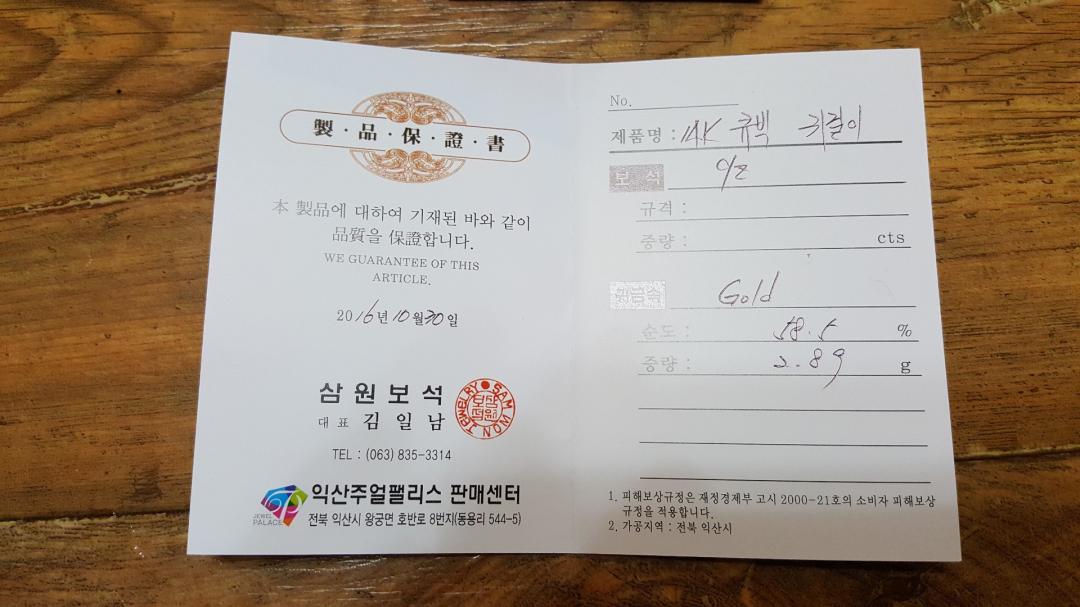 製·品·保·證·書
本 製品에 대하여 기재된 바와 같이
品質을 保證합니다.
WE GUARANTEE OF THIS
ARTICLE.
2016년 10월 30일
삼원보석
대표 김일남
JEWELRY SAM WON
삼원보석
TEL : (063) 835-3314
JEWEL
PALACE
익산주얼팰리스 판매센터
전북 익산시 왕궁면 호반로 8번지(동용리 544-5)
No.
제품명 : 14K 큐빅 귀걸이
보석
규격 :
중량 : cts
귀금속 Gold
순도 : 58.5 %
중량 : 2.89 g
1. 피해보상규정은 재정경제부 고시 2000-21호의 소비자 피해보상
규정을 적용합니다.
2. 가공지역 : 전북 익산시